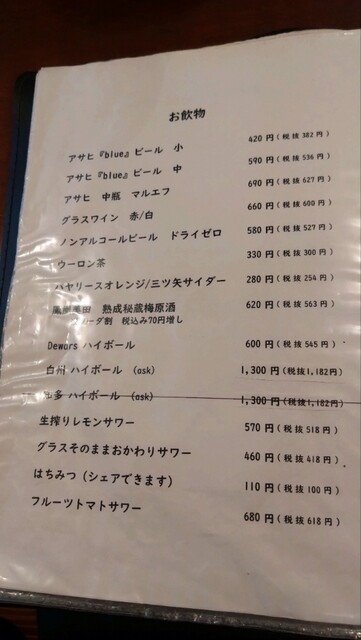 お飲物
アサヒ『blue』ビール 小 420円(税抜382円)
アサヒ『blue』ビール 中 590円(税抜536円)
アサヒ 中瓶 マルエフ 690円(税抜627円)
グラスワイン 赤/白 660円(税抜600円)
ノンアルコールビール ドライゼロ 580円(税抜527円)
ウーロン茶 330円(税抜300円)
バヤリースオレンジ/三ツ矢サイダー 280円(税抜254円)
熟成秘蔵梅原酒 620円(税抜563円)
ーダ割 税込み70円増し
Dewars ハイボール 600円(税抜545円)
白州 ハイボール (ask) 1,300円(税抜1,182円)
知多 ハイボール (ask) 1,300円(税抜1,182円)
生搾りレモンサワー 570円(税抜518円)
グラスそのままおかわりサワー 460円(税抜418円)
はちみつ(シェアできます) 110円(税抜100円)
フルーツトマトサワー 680円(税抜618円)